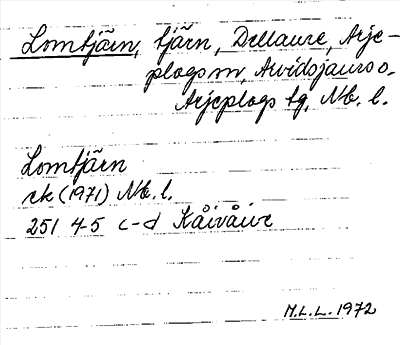 Lomtjärn, tjärn, Dellaure, Arje-
plogs sn, Arvidsjaurs o.
Arjeplogs tg, Nb. l.
Lomtjärn
rk (1971) Nb. l.
251 4-5 c-d Kåivåive
M.L.L. 1972